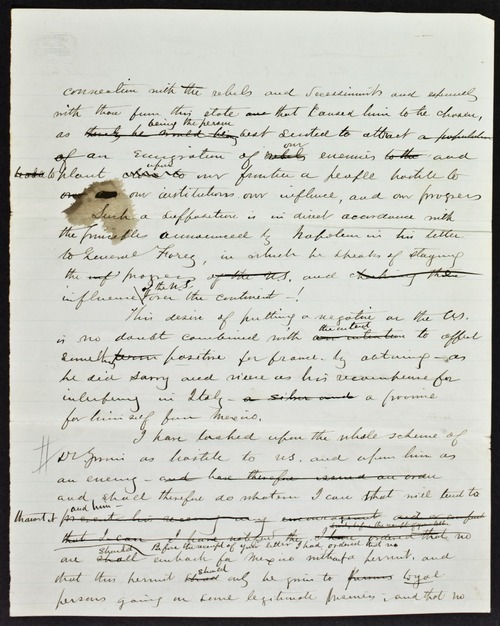 connection with the rebels and Secessionists and especially
with those from this state and that caused him to be chosen,
being the person
as thereby he would be best suited to attract a population
our
of an Emigration of rebels enemies to the and
to plant upon our frontier a people hostile to
our our institutions our influence, and our progress
Such a supposition is in direct accordance with
the principles announced by Napoleon in his letter
to General Forey, in which he speaks of staying
the progress of the U.S. and checking their
of the U.S.
influence over the continent—!
This desire of putting a negative on the U.S.
the intent
is no doubt combined with an intention to effect
something positive for france—by obtaining—as
he did Savoy and Nice as his recompense for
interfering in Italy— a a promise
for himself from Mexico.
I have looked upon the whole scheme of
Dr Gwin as hostile to U.S. and upon him as
an enemy— and have therefore issued an order
and shall therefore do whatever I can that will tend to
and him—
thwart it prevent his
that I can I have not that no
should Before the receipt of your letter I had
one shall embark for Mexico without a permit, and
should
that this permit should only be given to loyal
persons going on some legitimate business; and that no